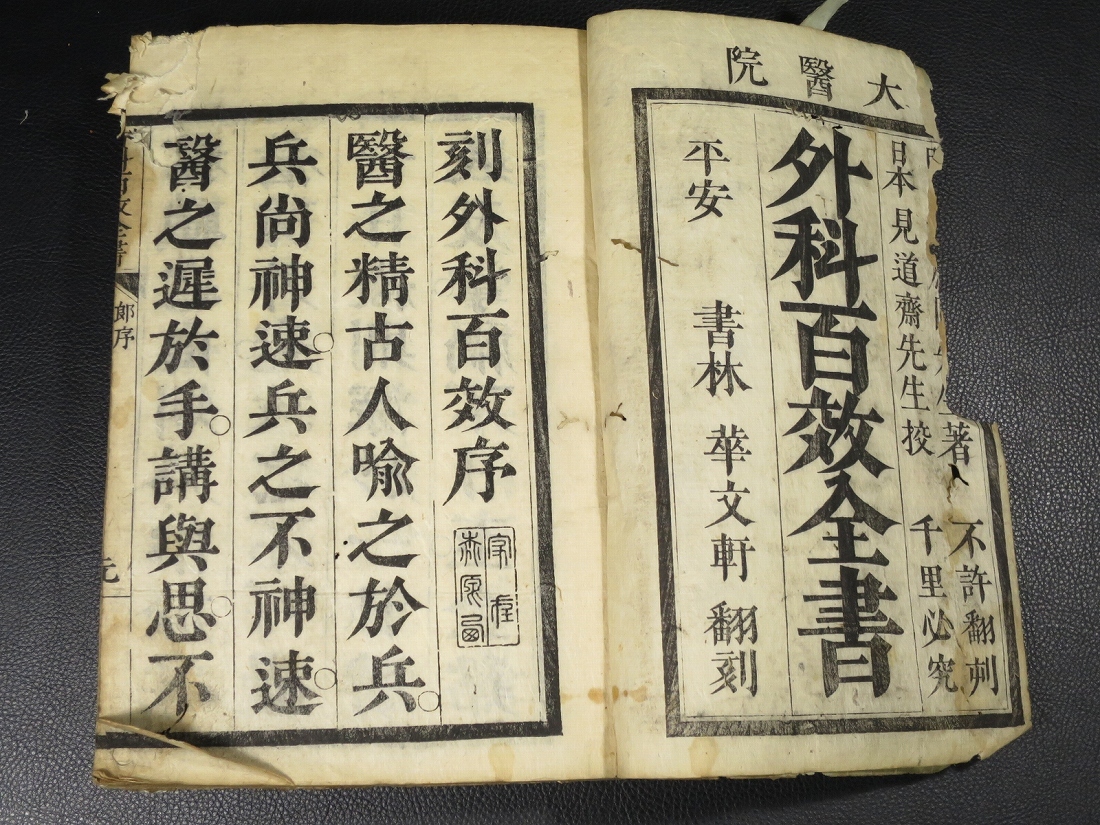 大醫院
著 不許翻刻
日本見道齋先生挍 千里必究
外科百效全書
平安 書林 華文軒 翻刻
刻外科百效序
醫之精古人喻之於兵。
兵尚神速。兵之不神速。
醫之遲於手。講與思。不
科百效全書
郎序
元